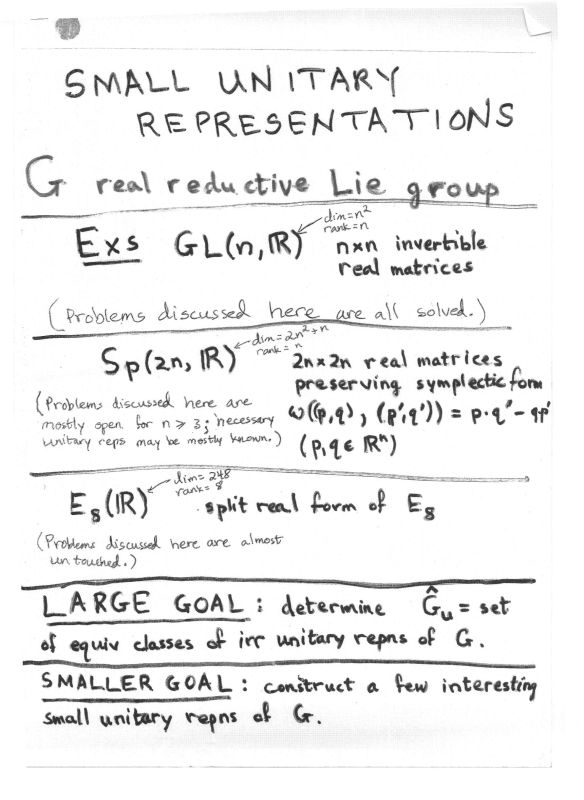 SMALL UNITARY
REPRESENTATIONS
G real reductive Lie group
dim=n²
rank=n
Exs GL(n,ℝ) n×n invertible
real matrices
(Problems discussed here are all solved.)
dim=2n²+n
rank=n
Sp(2n,ℝ) 2n×2n real matrices
preserving symplectic form
(Problems discussed here are
mostly open for n ≥ 3; necessary
unitary reps may be mostly known.)
ω((p,q), (p',q')) = p·q' - q·p'
(p,q ∈ ℝⁿ)
dim=248
rank=8
E₈(ℝ) split real form of E₈
(Problems discussed here are almost
untouched.)
LARGE GOAL: determine Ĝᵤ = set
of equiv classes of irr unitary repns of G.
SMALLER GOAL: construct a few interesting
small unitary repns of G.